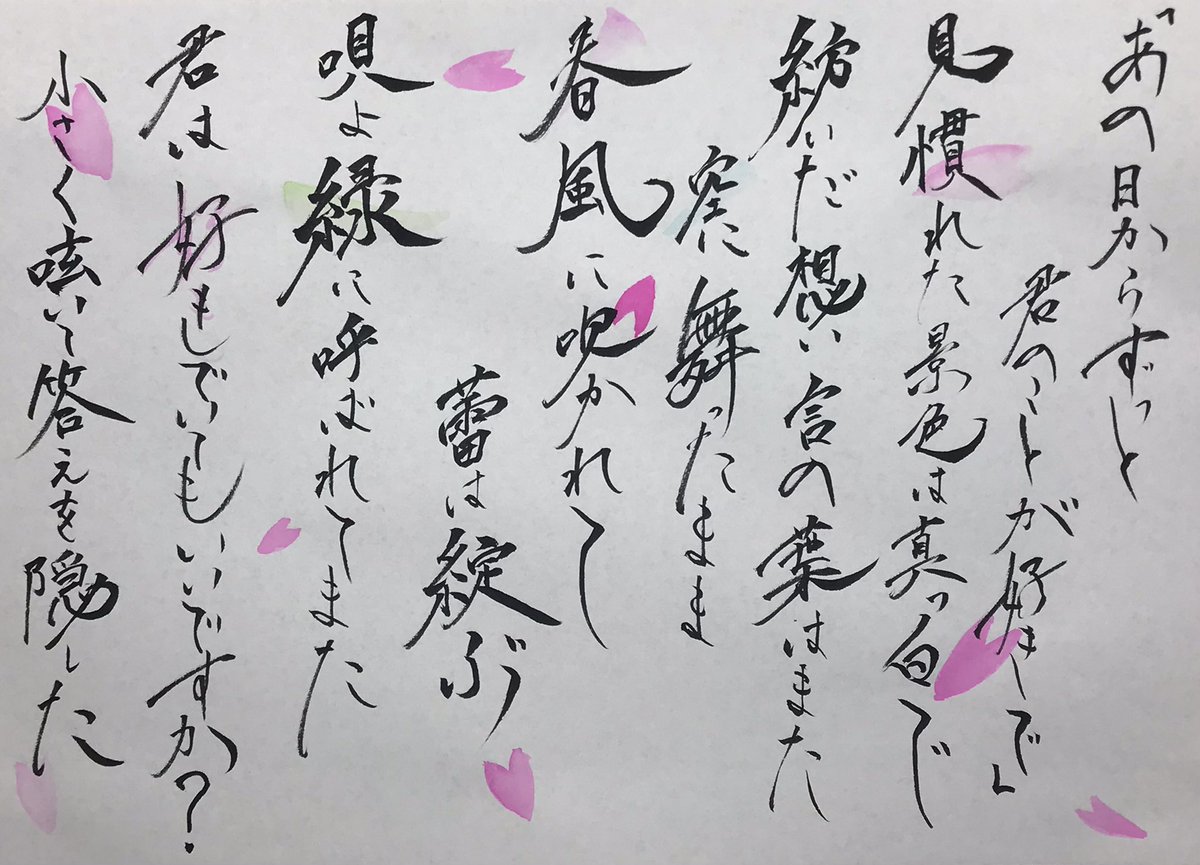 「あの日からずっと
君のことが好きで」
見慣れた景色は真っ白で
紡いだ想い言の葉はまた
空に舞ったまま
春風に吹かれて
蕾は綻ぶ
唄よ緑に呼ばれてまた
君は好きでいてもいいですか？
小さく呟いて答えを隠した